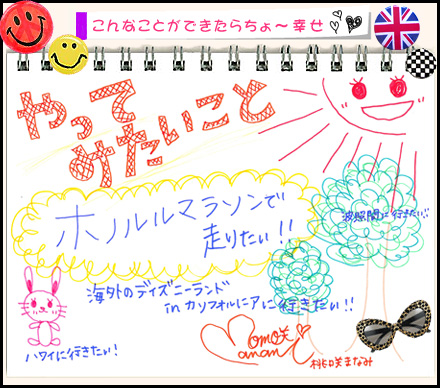 こんなことができたらちょ〜幸せ
やって
みたいこと
ホノルルマラソンで
走りたい!!
波照間に行きたい!!
海外のディズニーランド
in カリフォルニアに行きたい!!
ハワイに行きたい!
Momo咲
manami
桃咲まなみ